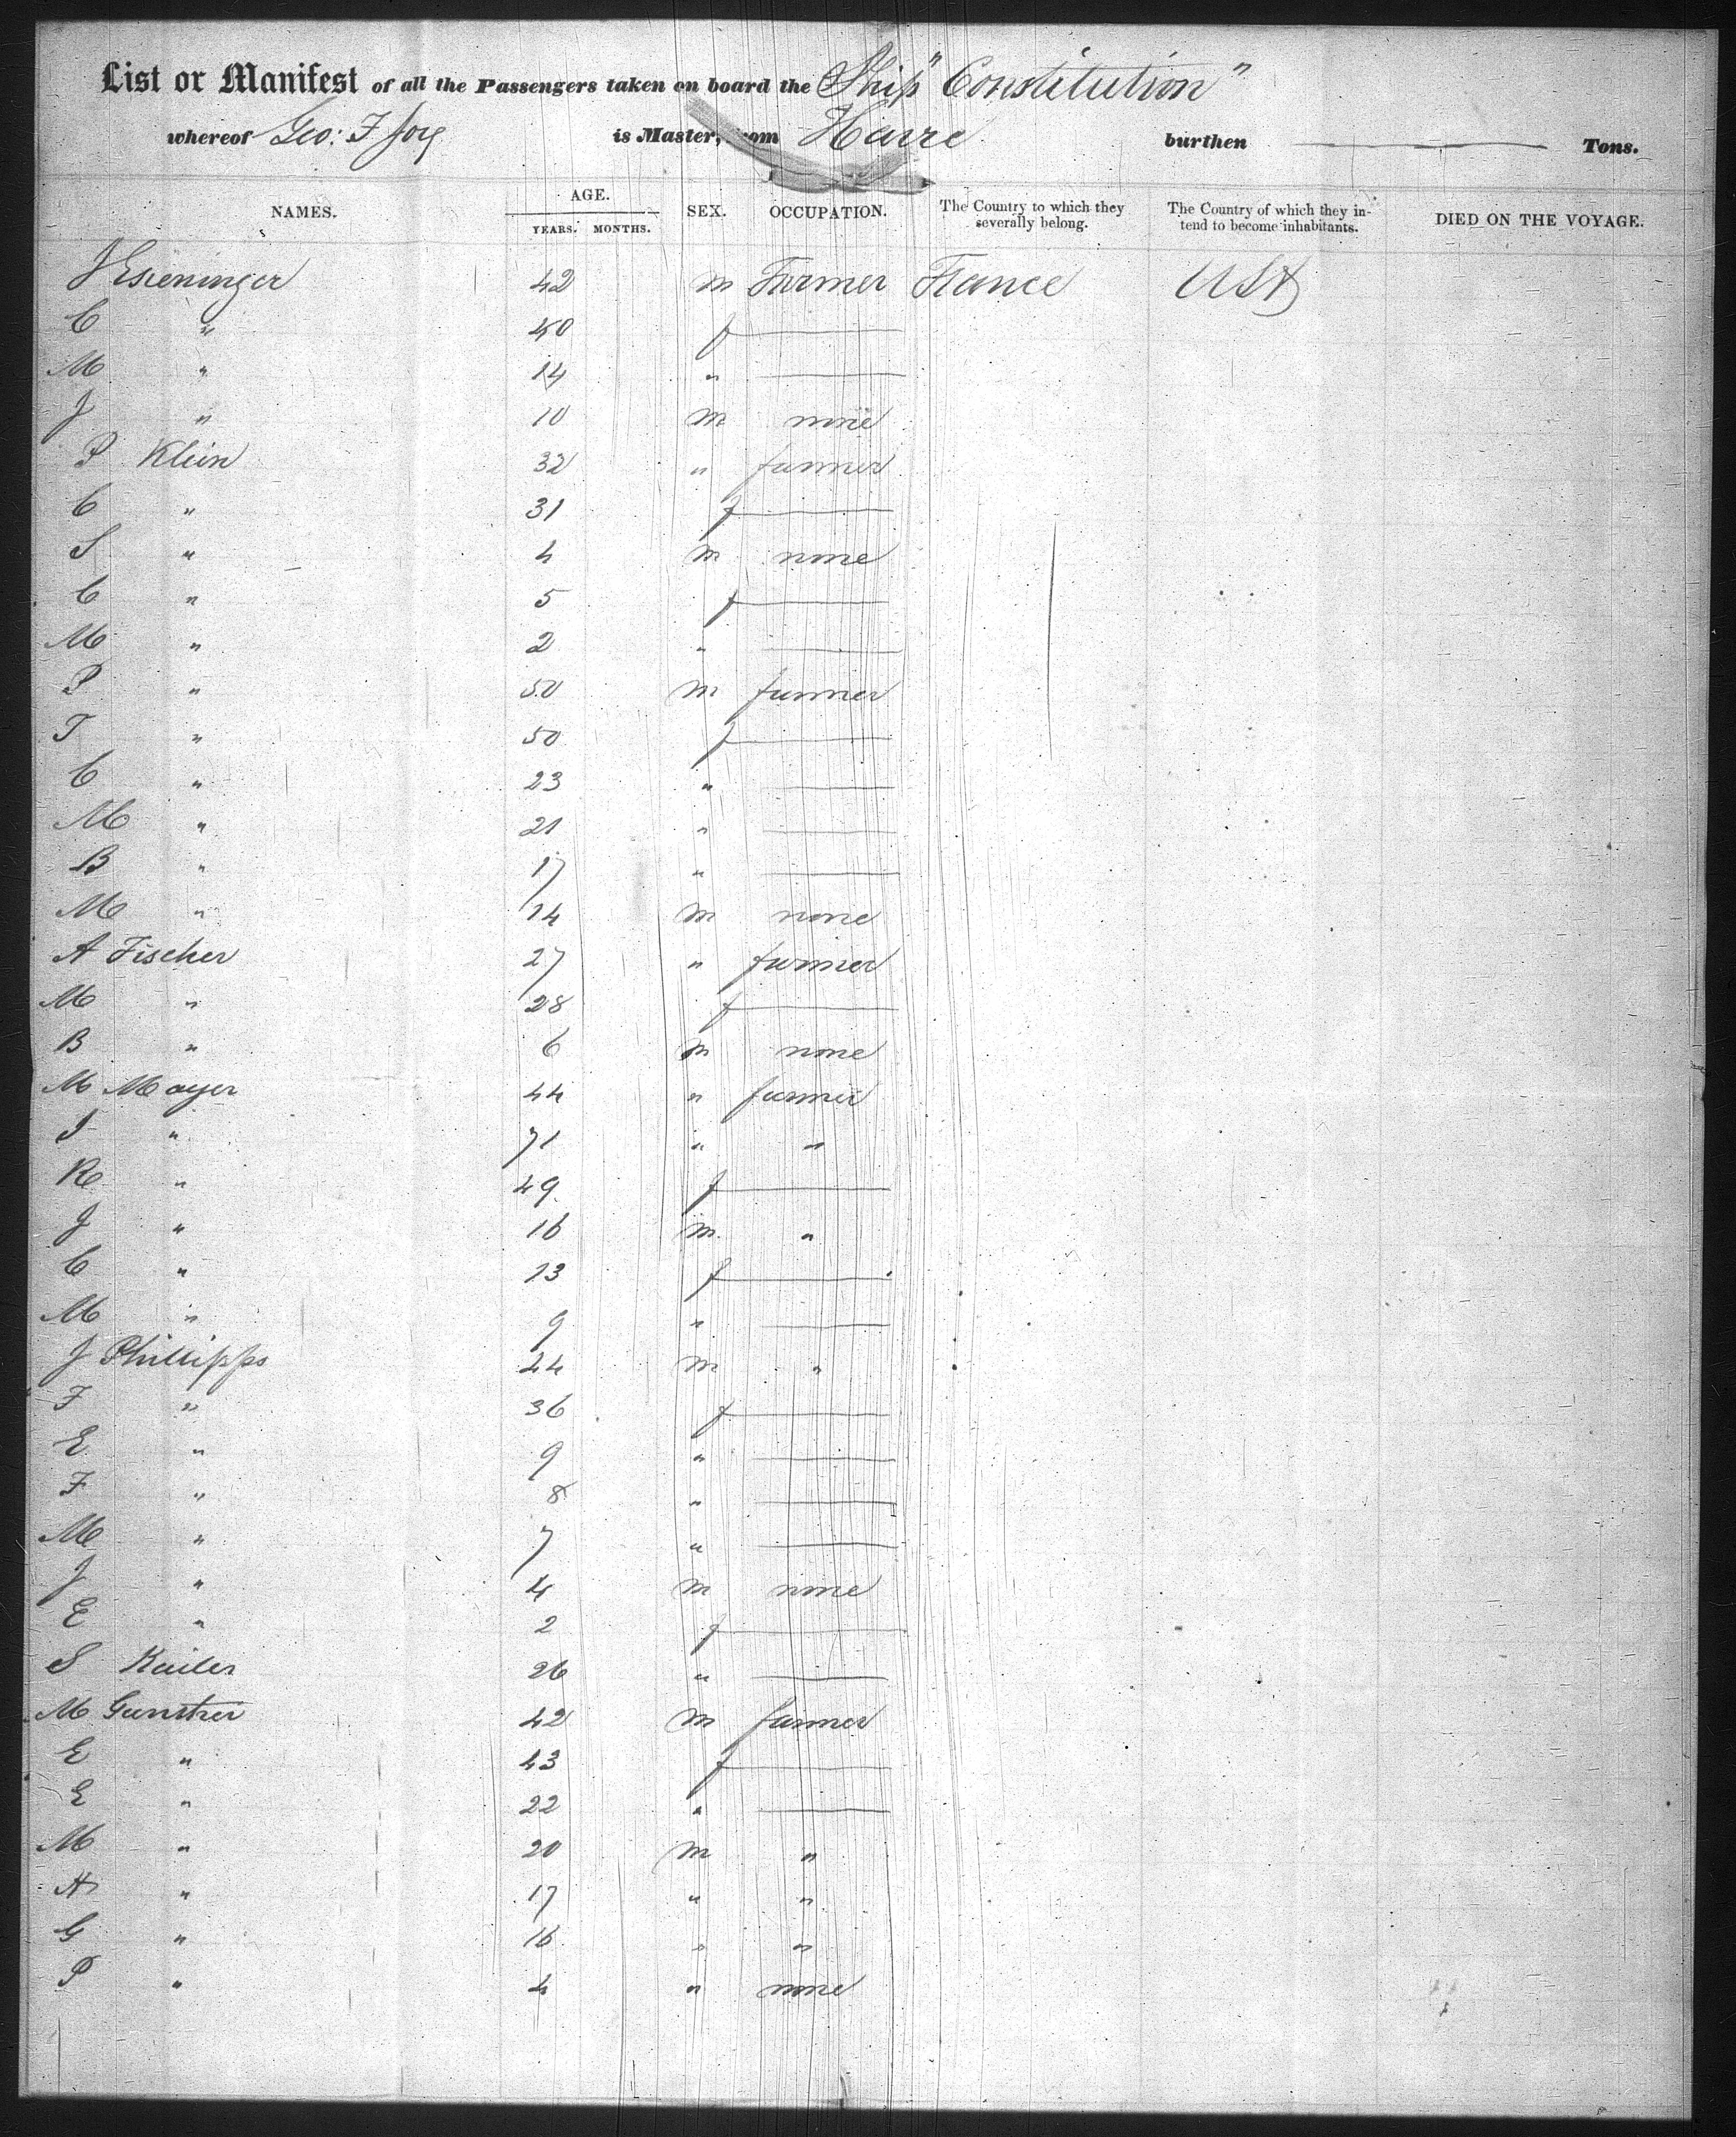 List or Manifest of all the Passengers taken on board the Ship "Constitution"
whereof Geo: F Joy is Master, from Havre burthen ——— Tons.
NAMES. AGE. YEARS. MONTHS. SEX. OCCUPATION. The Country to which they severally belong. The Country of which they intend to become inhabitants. DIED ON THE VOYAGE.
J 42 m Farmer France USA
C " 40 f ———
M " 14 " ———
J " 10 m none
P Klein 32 " farmer
C " 31 f ———
S " 4 m none
C " 5 f ———
M " 2 " ———
P " 50 m farmer
T " 50 f ———
C " 23 " ———
M " 21 " ———
B " 17 " ———
M " 14 m none
A Fischer 27 " farmer
M " 28 f ———
B " 6 m none
M Mayer 44 " farmer
J " 71 " "
R " 49 f ———
J " 16 m "
C " 13 f ———
M " 9 " ———
J Phillipps 44 m "
F " 36 f ———
E " 9 " ———
F " 8 " ———
M " 7 " ———
J " 4 m none
E " 2 f ———
S Kailer 26 " ———
M Gunther 42 m farmer
E " 43 f ———
E " 22 " ———
M " 20 m "
A " 17 " "
G " 16 " "
P " 4 " none